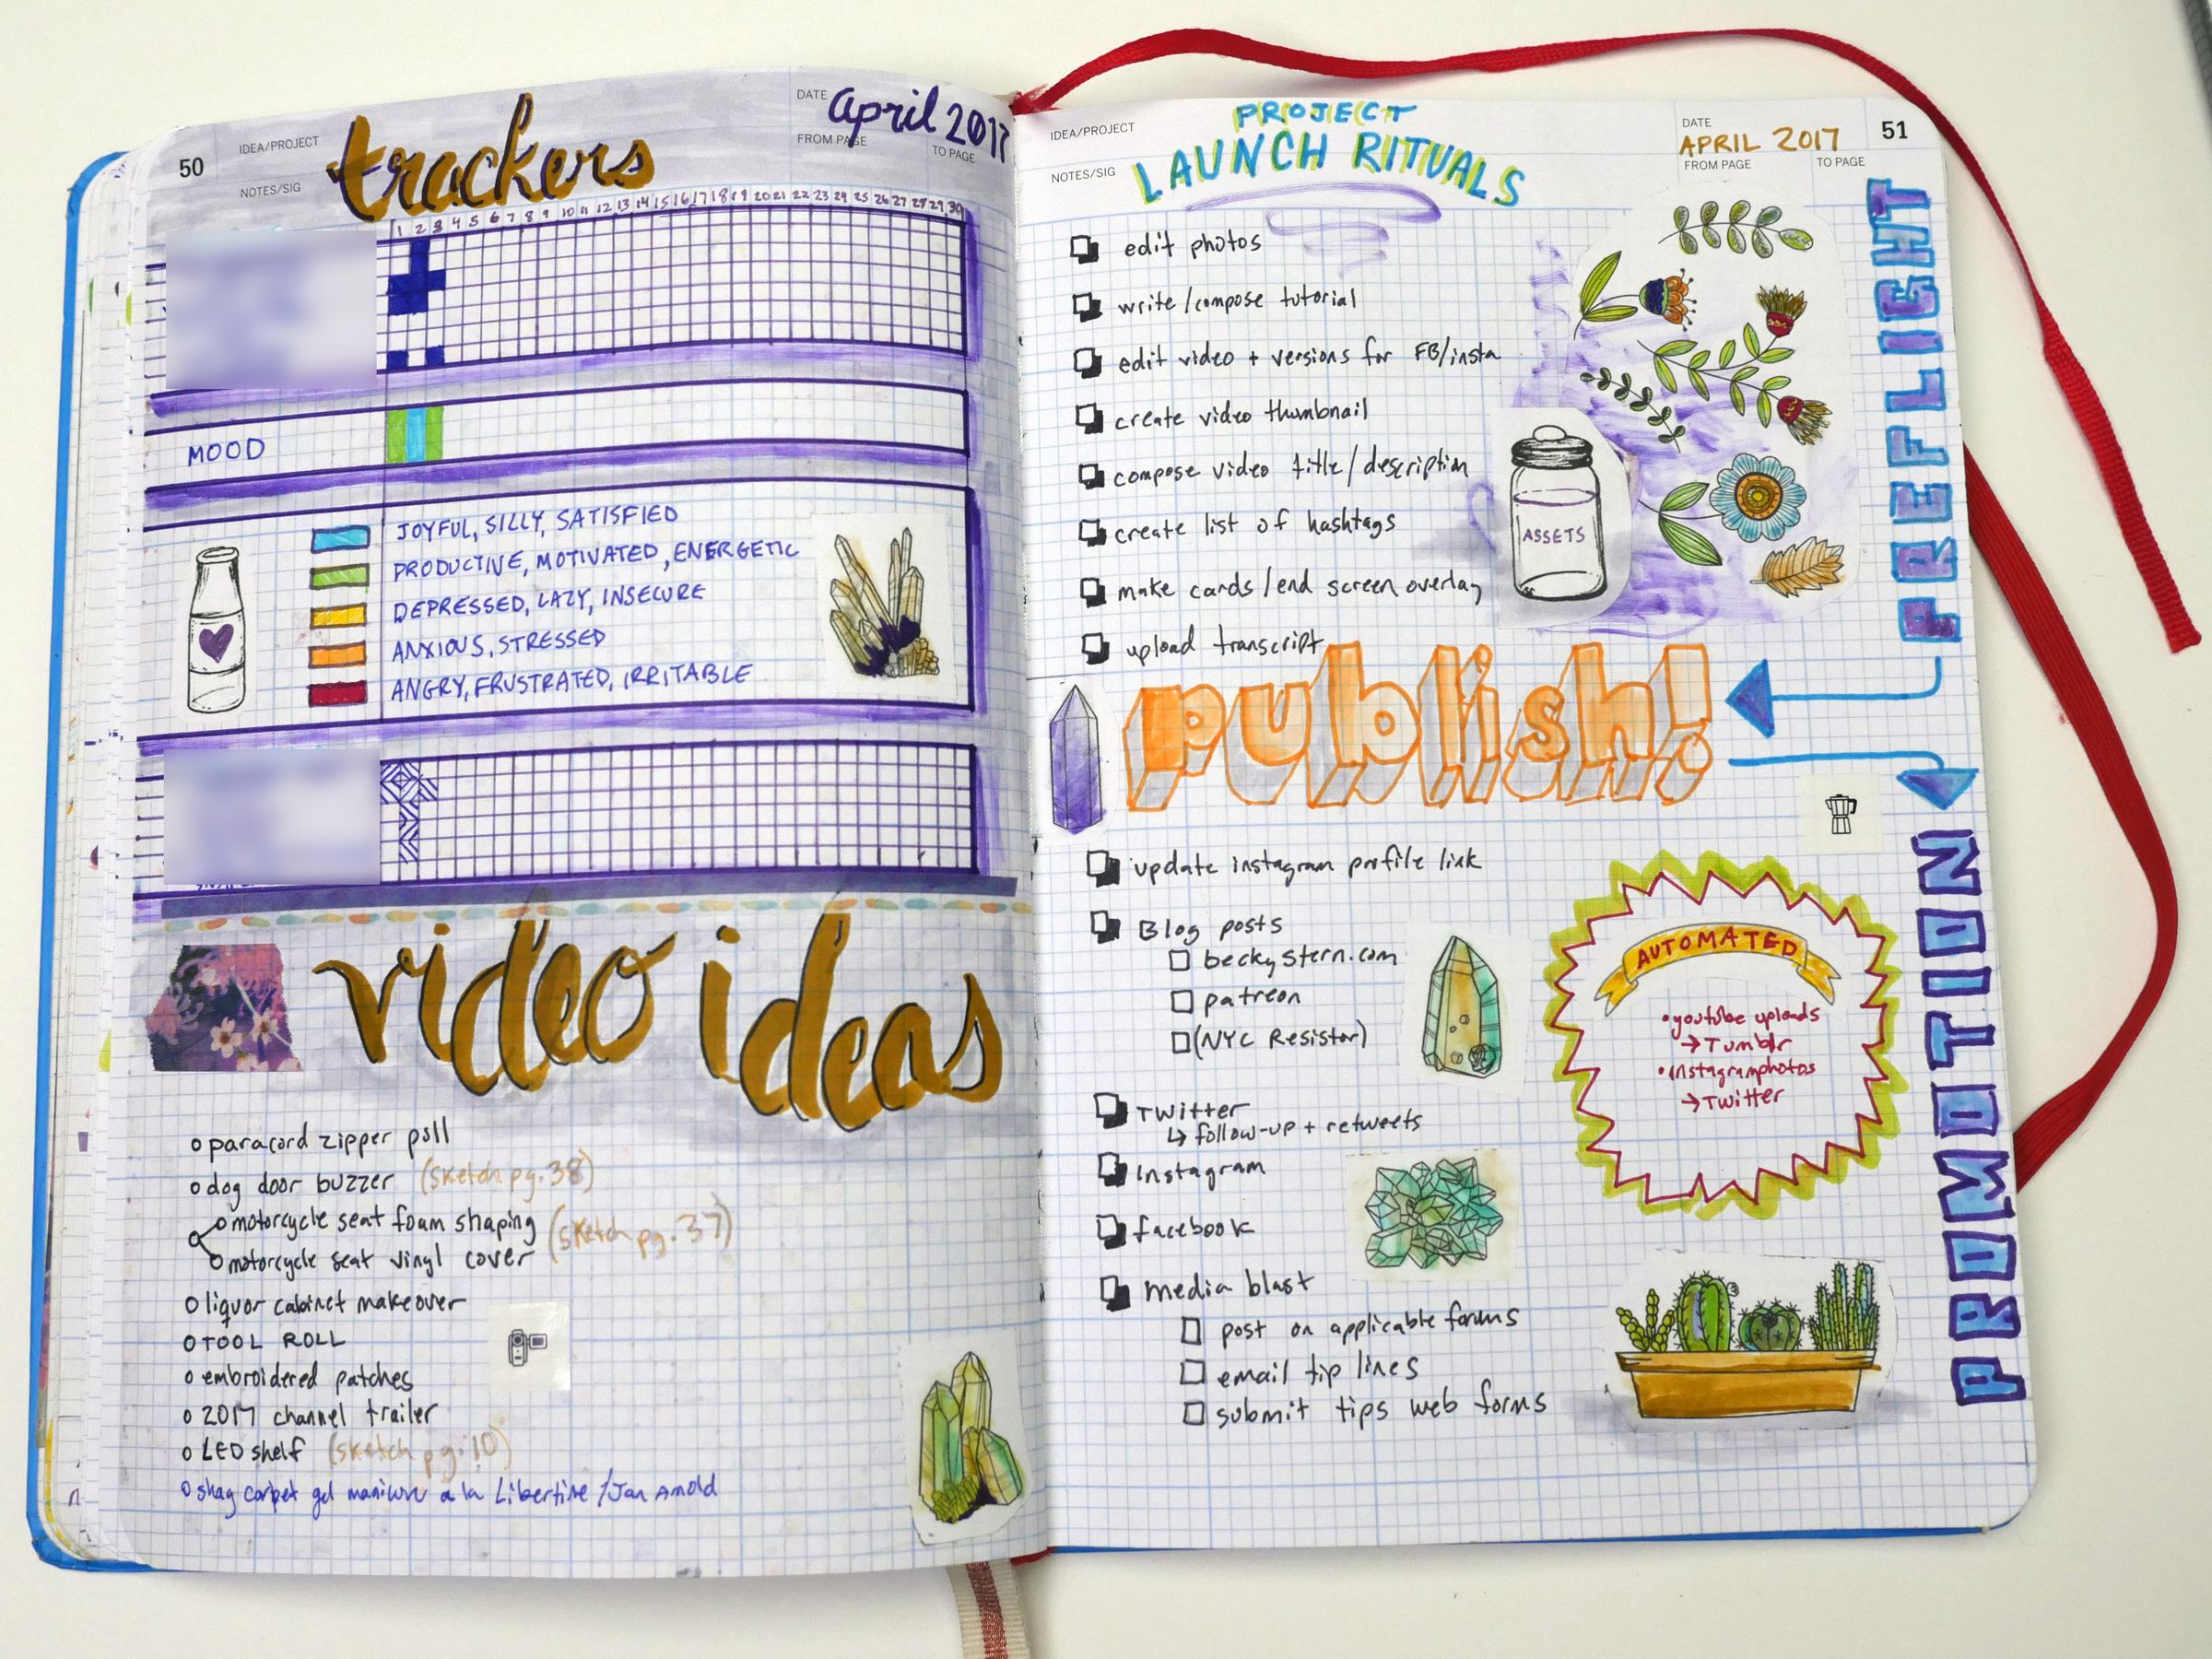 50
IDEA/PROJECT
NOTES/SIG
trackers
DATE april 2017
FROM PAGE
TO PAGE
1 2 3 4 5 6 7 8 9 10 11 12 13 14 15 16 17 18 19 20 21 22 23 24 25 26 27 28 29 30
MOOD
JOYFUL, SILLY, SATISFIED
PRODUCTIVE, MOTIVATED, ENERGETIC
DEPRESSED, LAZY, INSECURE
ANXIOUS, STRESSED
ANGRY, FRUSTRATED, IRRITABLE
video ideas
paracord zipper pull
dog door buzzer (sketch pg. 38)
motorcycle seat foam shaping
motorcycle seat vinyl cover
(sketch pg. 37)
liquor cabinet makeover
TOOL ROLL
embroidered patches
2017 channel trailer
LED shelf (sketch pg. 10)
shag carpet gel manicure a la Libertine/Jan Arnold
IDEA/PROJECT
NOTES/SIG
PROJECT
LAUNCH RITUALS
DATE
APRIL 2017
FROM PAGE
TO PAGE
51
PREFLIGHT
edit photos
write/compose tutorial
edit video + versions for FB/insta
create video thumbnail
compose video title/description
create list of hashtags
make cards/end screen overlay
upload transcript
ASSETS
publish!
PROMOTION
update instagram profile link
Blog posts
beckystern.com
patreon
(NYC Resistor)
Twitter
↳ follow-up + retweets
Instagram
facebook
media blast
post on applicable forums
email tip lines
submit tips web forms
AUTOMATED
• youtube uploads
→ Tumblr
• instagram photos
→ Twitter